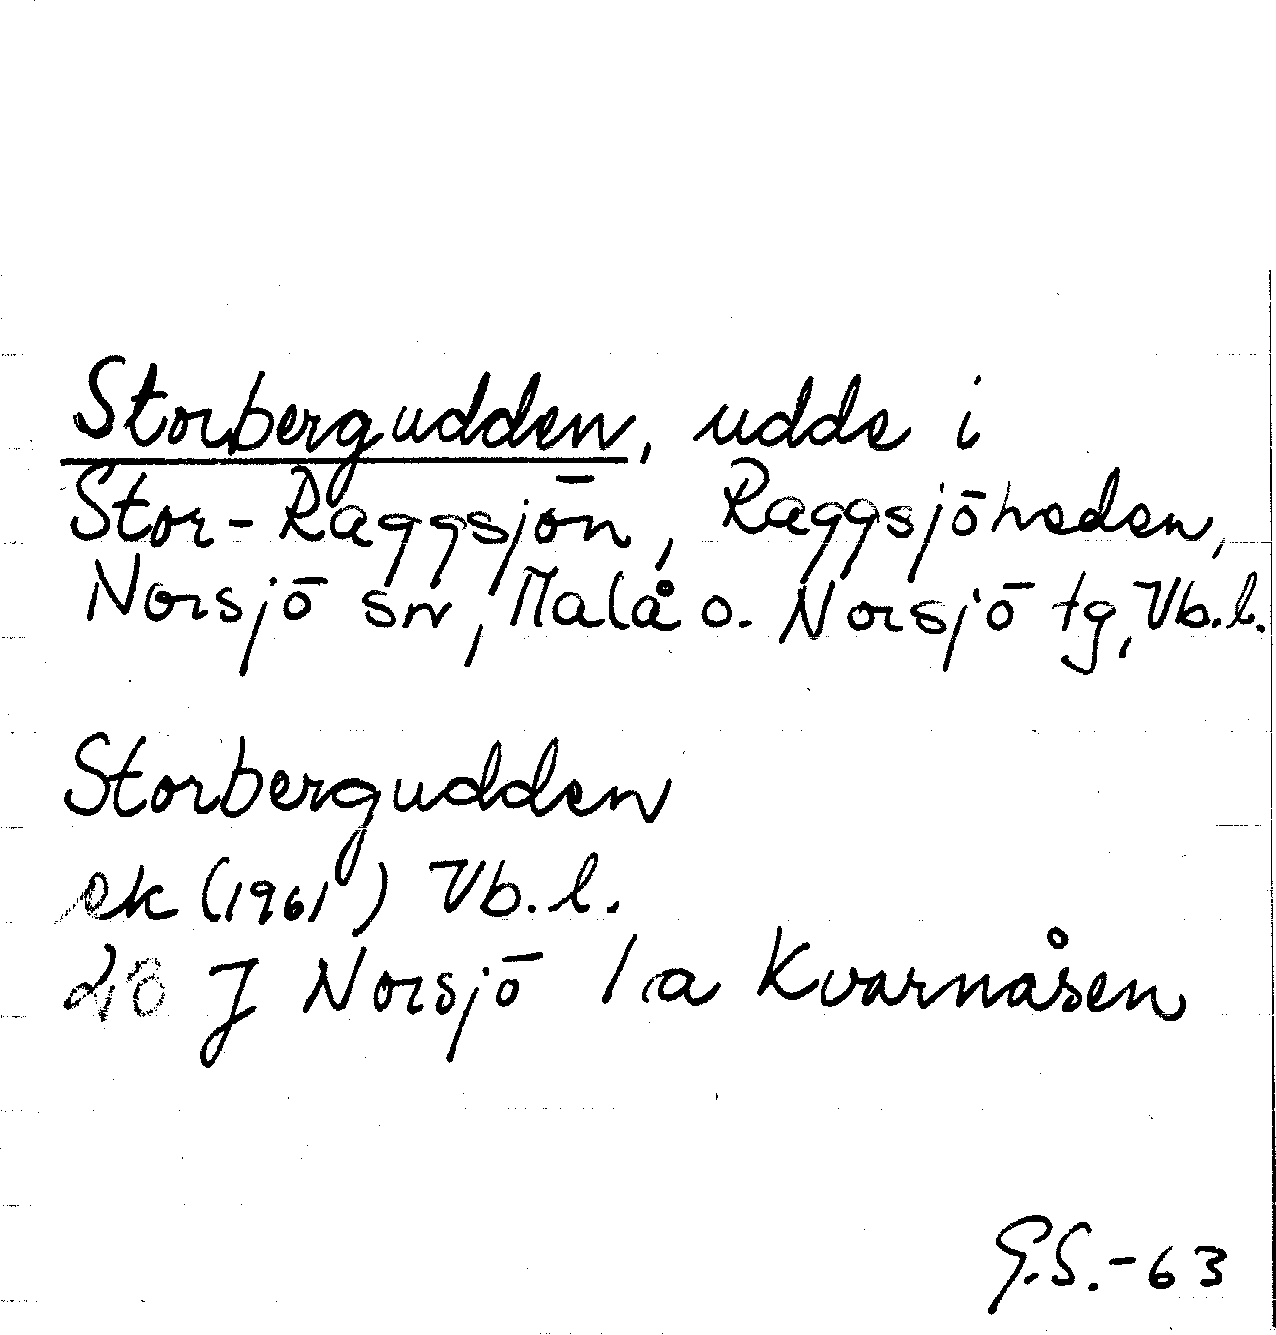 Storbergudden, udde i
Stor-Raggsjön, Raggsjöheden,
Norsjö sn, Malå o. Norsjö tg, Vb.l.
Storbergudden
ek (1961) Vb.l.
J Norsjö 1a Kvarnåsen
G.S.-63